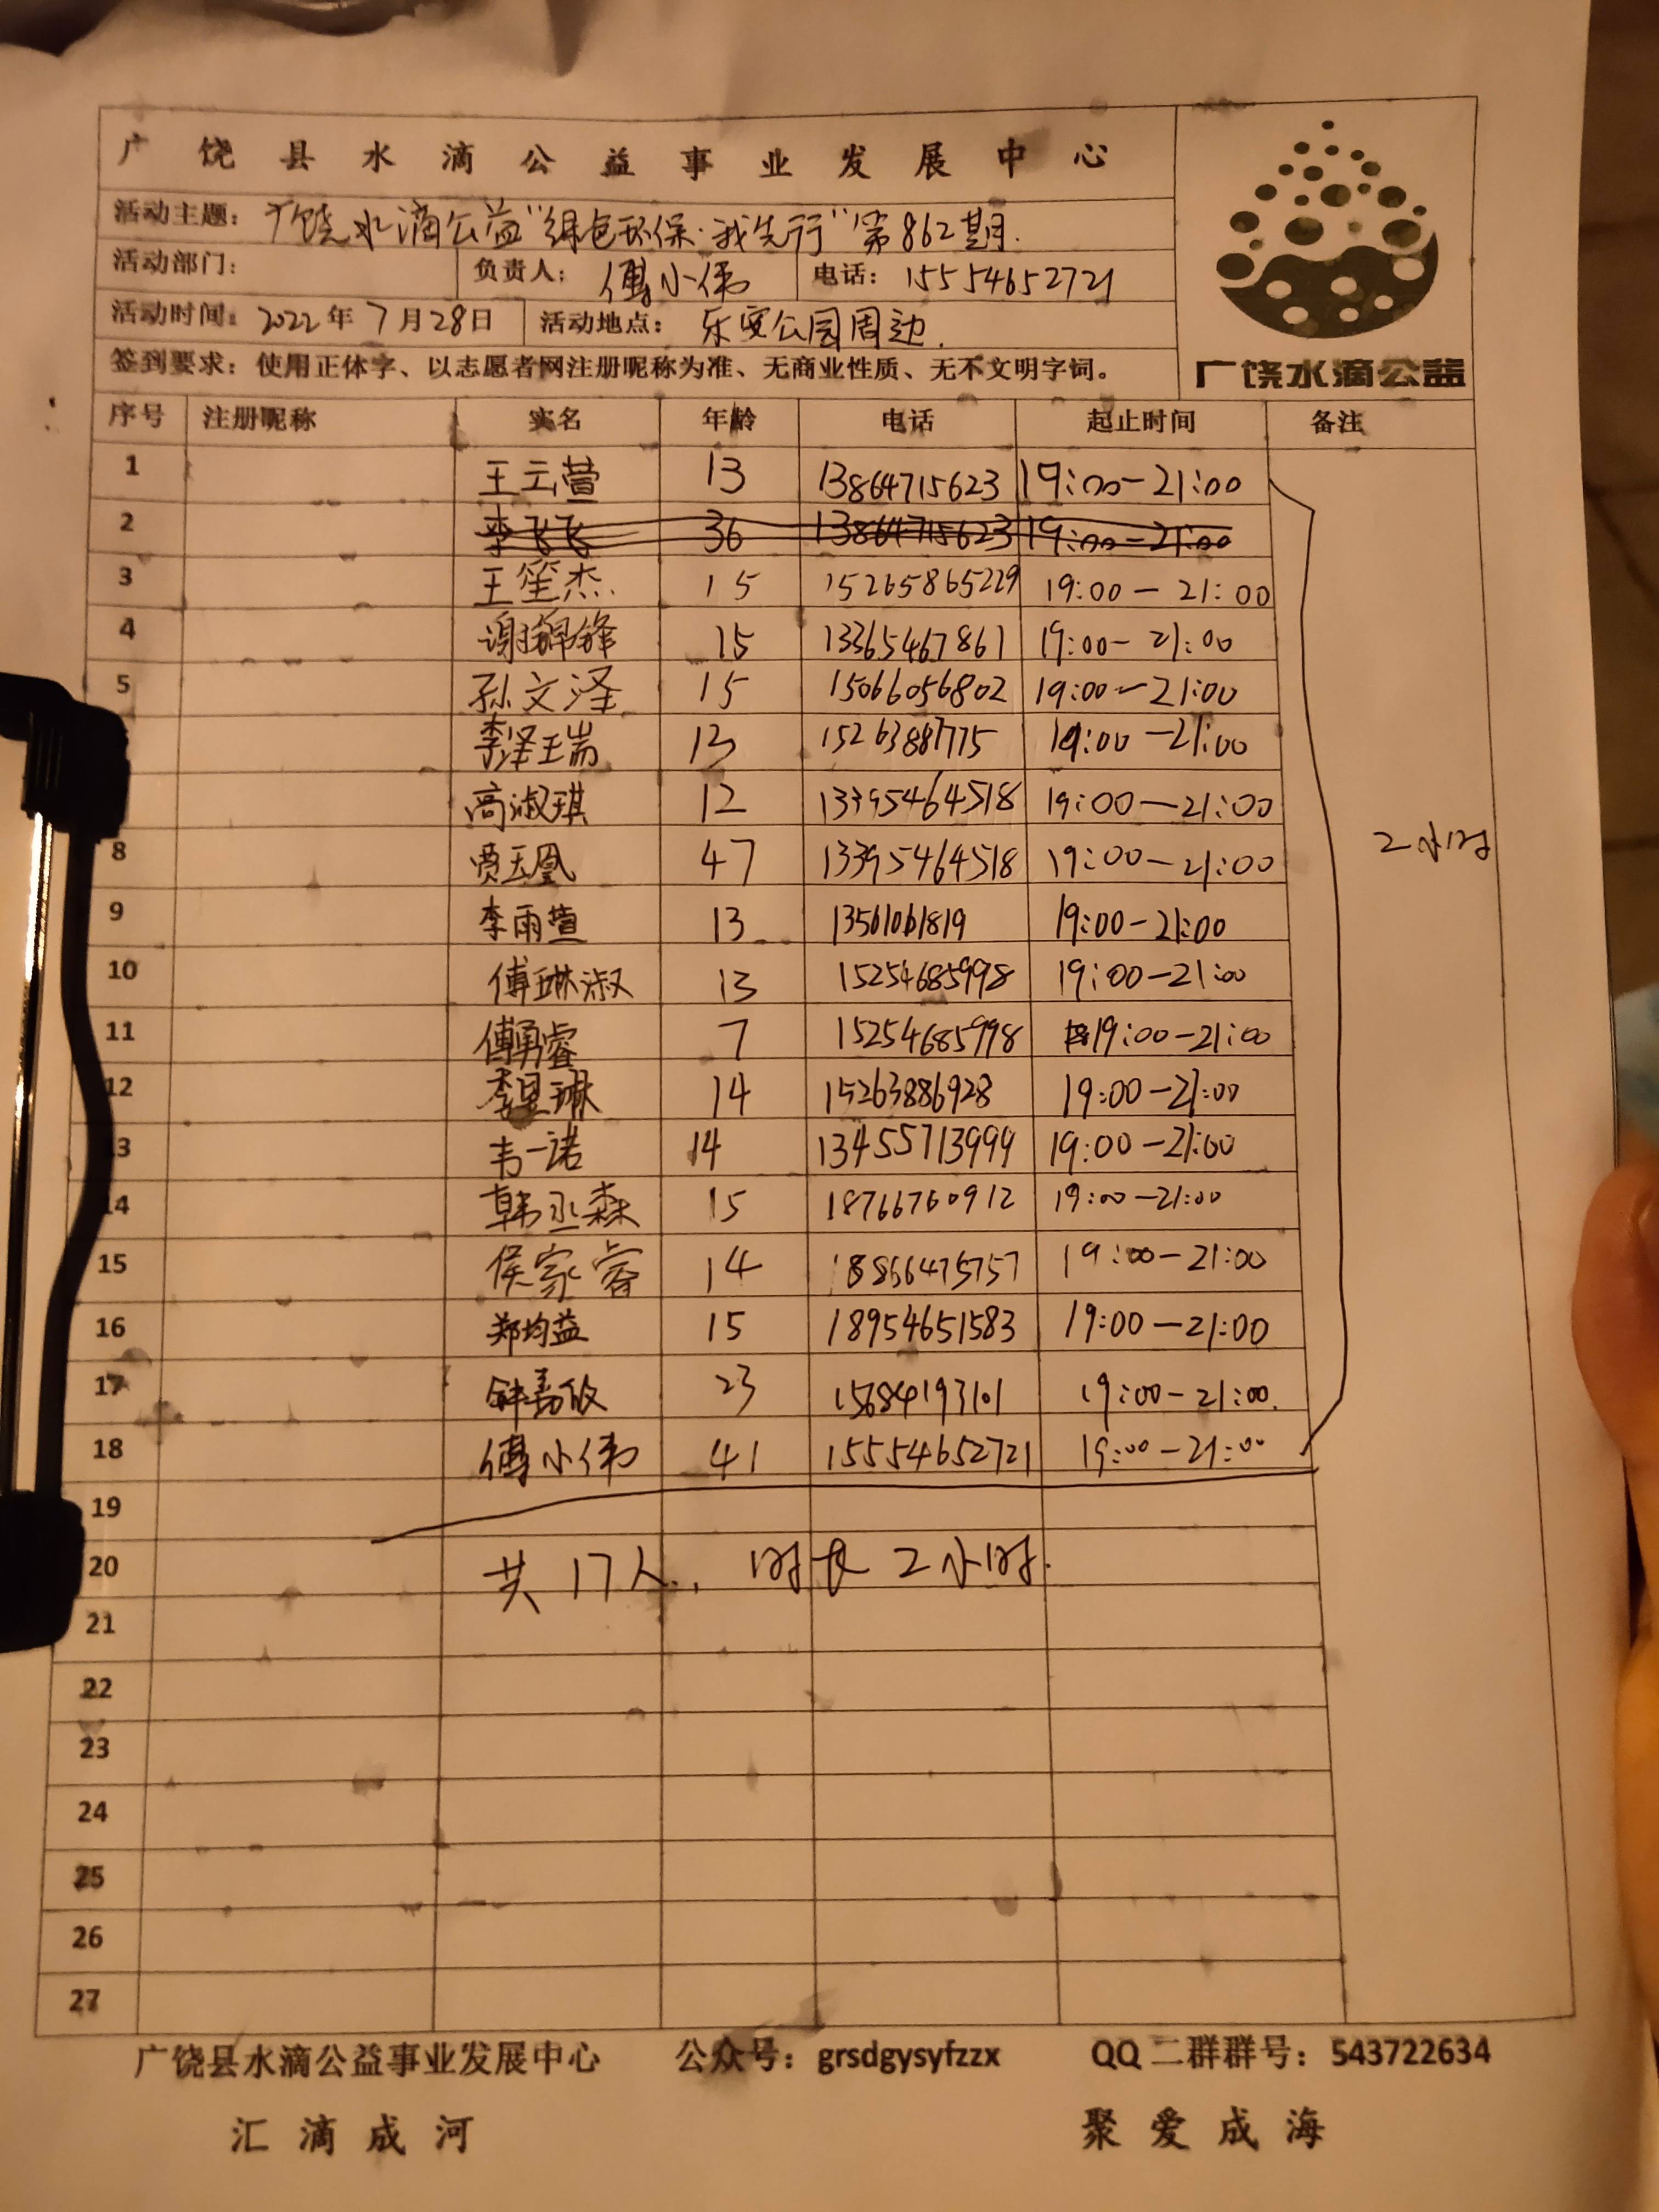 广饶县水滴公益事业发展中心
活动主题：广饶水滴公益“绿色环保·我先行”第862期.
活动部门： 负责人：傅小伟 电话：15554652721
活动时间：2022年7月28日 活动地点：乐安公园周边.
签到要求：使用正体字、以志愿者网注册昵称为准、无商业性质、无不文明字词。
广饶水滴公益
序号 注册昵称 实名 年龄 电话 起止时间 备注
1 王云萱 13 13864715623 19:00-21:00
2 李飞飞 36 13864715623 19:00-21:00
3 王笙杰 15 15265865229 19:00-21:00
4 谢锦锋 15 13365467861 19:00-21:00
5 孙文泽 15 15066056802 19:00-21:00
李泽瑞 13 15263887775 19:00-21:00
高淑琪 12 13395464518 19:00-21:00
8 贾玉凰 47 13395464518 19:00-21:00
2小时
9 李雨萱 13 13561061819 19:00-21:00
10 傅琳淑 13 15254685998 19:00-21:00
11 傅勇睿 7 15254685998 19:00-21:00
12 李星琳 14 15263886928 19:00-21:00
13 韦一诺 14 13455713999 19:00-21:00
14 韩丞森 15 18766760912 19:00-21:00
15 侯家睿 14 18866475757 19:00-21:00
16 郑均益 15 18954651583 19:00-21:00
17 钟嘉 23 15684193101 19:00-21:00.
18 傅小伟 41 15554652721 19:00-21:00
19
20 共17人., 时长2小时.
21
22
23
24
25
26
27
广饶县水滴公益事业发展中心 公众号：grsdgysyfzzx QQ二群群号：543722634
汇滴成河 聚爱成海